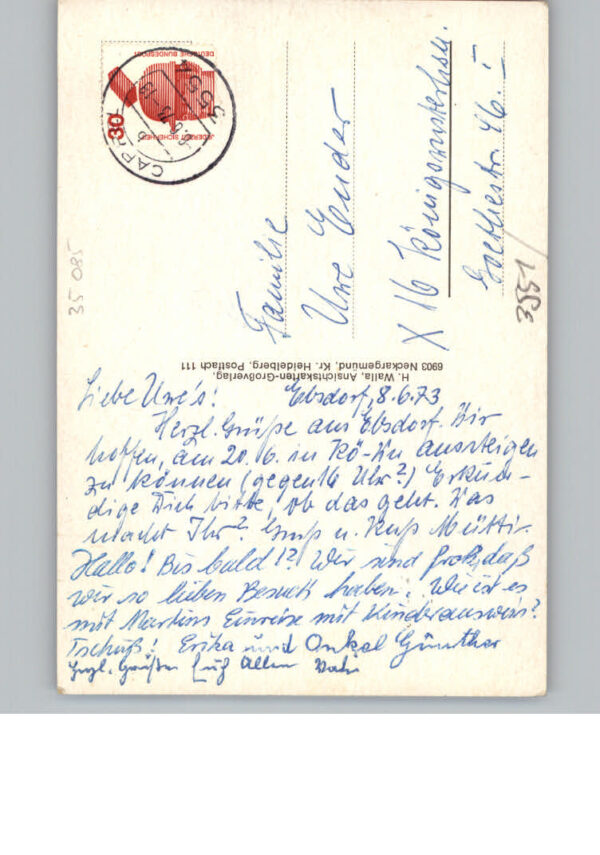 DEUTSCHE BUNDESPOST
JEDERZEIT SICHERHEIT
30
3551
CAPP
Familie
Uwe Ender
X 16 Königswusterhsn.
Goethestr. 46. I
3551
35 085
H. Walla, Ansichtskarten-Großverlag,
6903 Neckargemünd, Kr. Heidelberg, Postfach 111
Liebe Uwe's! Ebsdorf, 8.6.73
Herzl. Grüße aus Ebsdorf. Wir
hoffen, am 20. 6. in Kö-Wu aussteigen
zu können (gegen 16 Uhr?) Erkun-
dige Dich bitte, ob das geht. Was
macht Ihr? Gruß u. Kuß Mutti.
Hallo! Bis bald!? Wir sind froh, daß
wir so lieben Besuch haben. Wie ist es
mit Martins Einreise mit Kinderausweis?
Tschüß! Erika und Onkel Günther
Herzl. Grüße Euch Allen